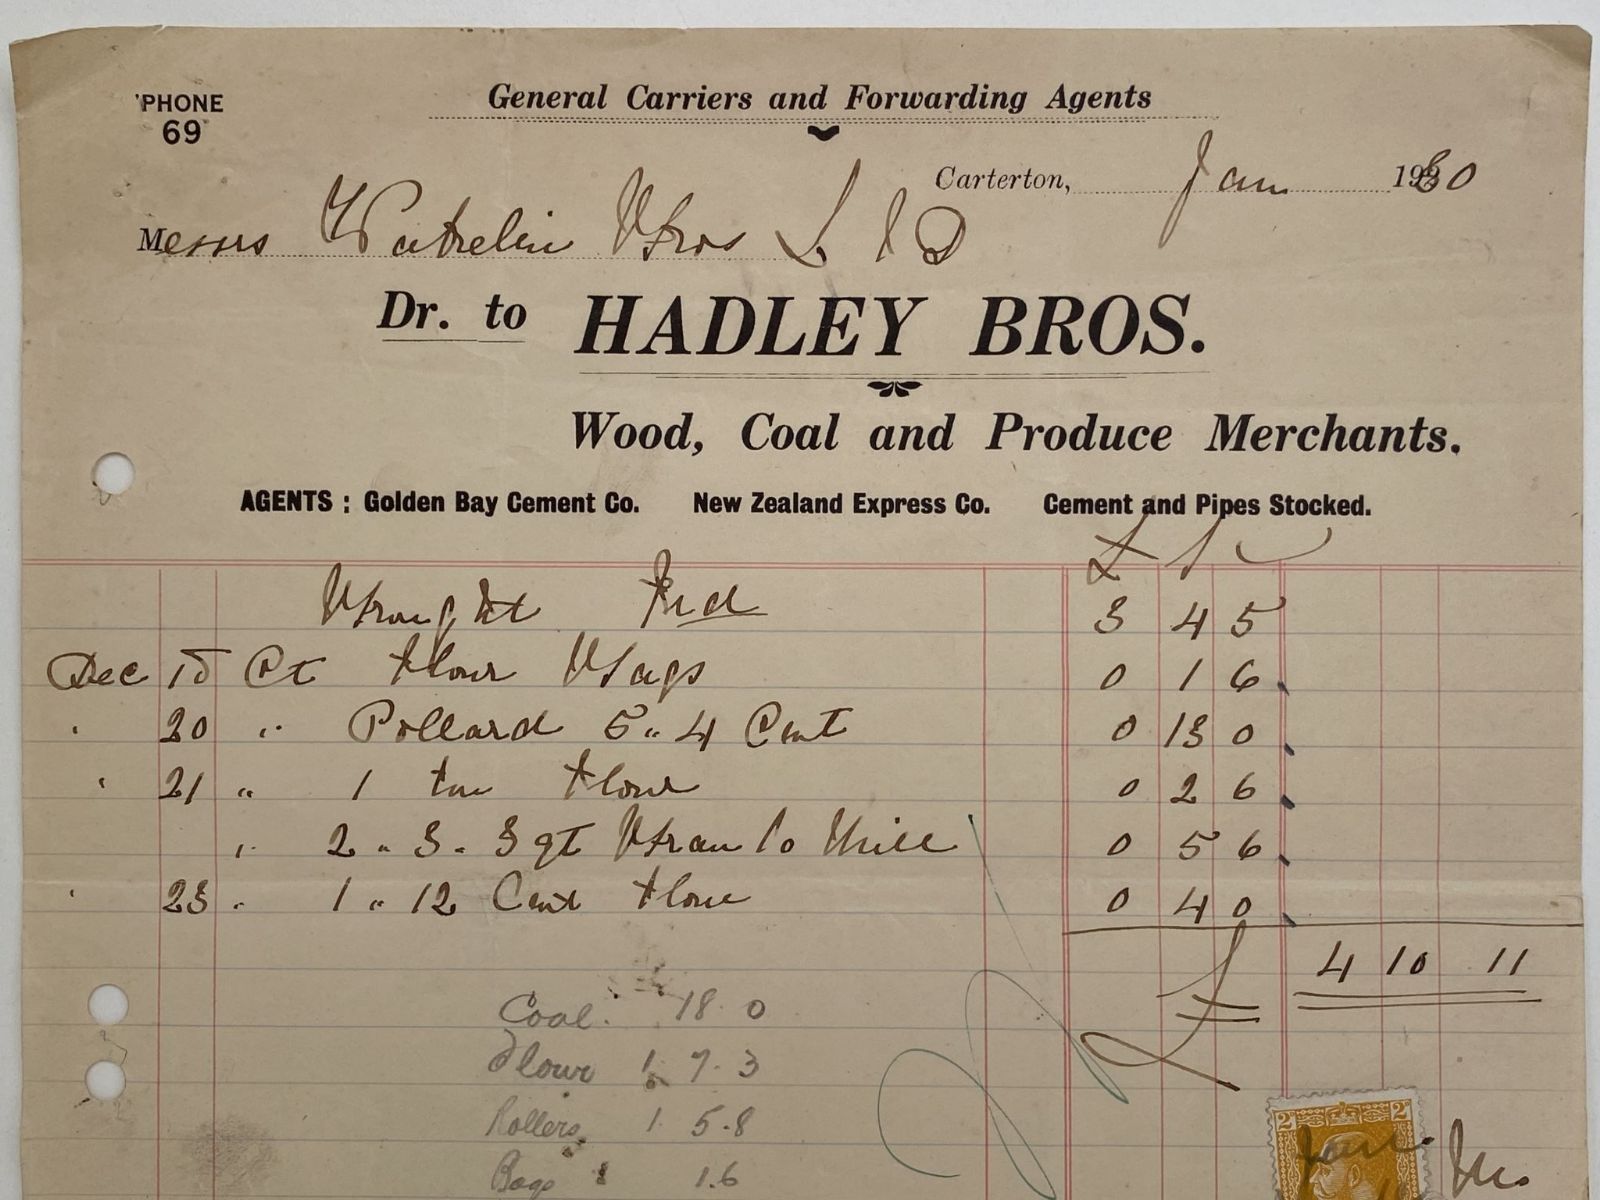 'PHONE
69
General Carriers and Forwarding Agents
Carterton, Jan 1930
Messrs Bros LTD
Dr. to HADLEY BROS.
Wood, Coal and Produce Merchants.
AGENTS : Golden Bay Cement Co. New Zealand Express Co. Cement and Pipes Stocked.
£ s
Brought Fwd 3 4 5
Dec 15 Ct Flour Bags 0 1 6
" 20 " Pollard 5 " 4 Cwt 0 13 0
" 21 " 1 ton Flour 0 2 6
" 2 " 3 " 3 qt Bran to Mill 0 5 6
" 23 " 1 " 12 Cwt Flour 0 4 0
£ 4 10 11
Coal. 18. 0
Flour 1. 7. 3
Rollers 1. 5.8
Bags 1.6
2D 2D
Jan